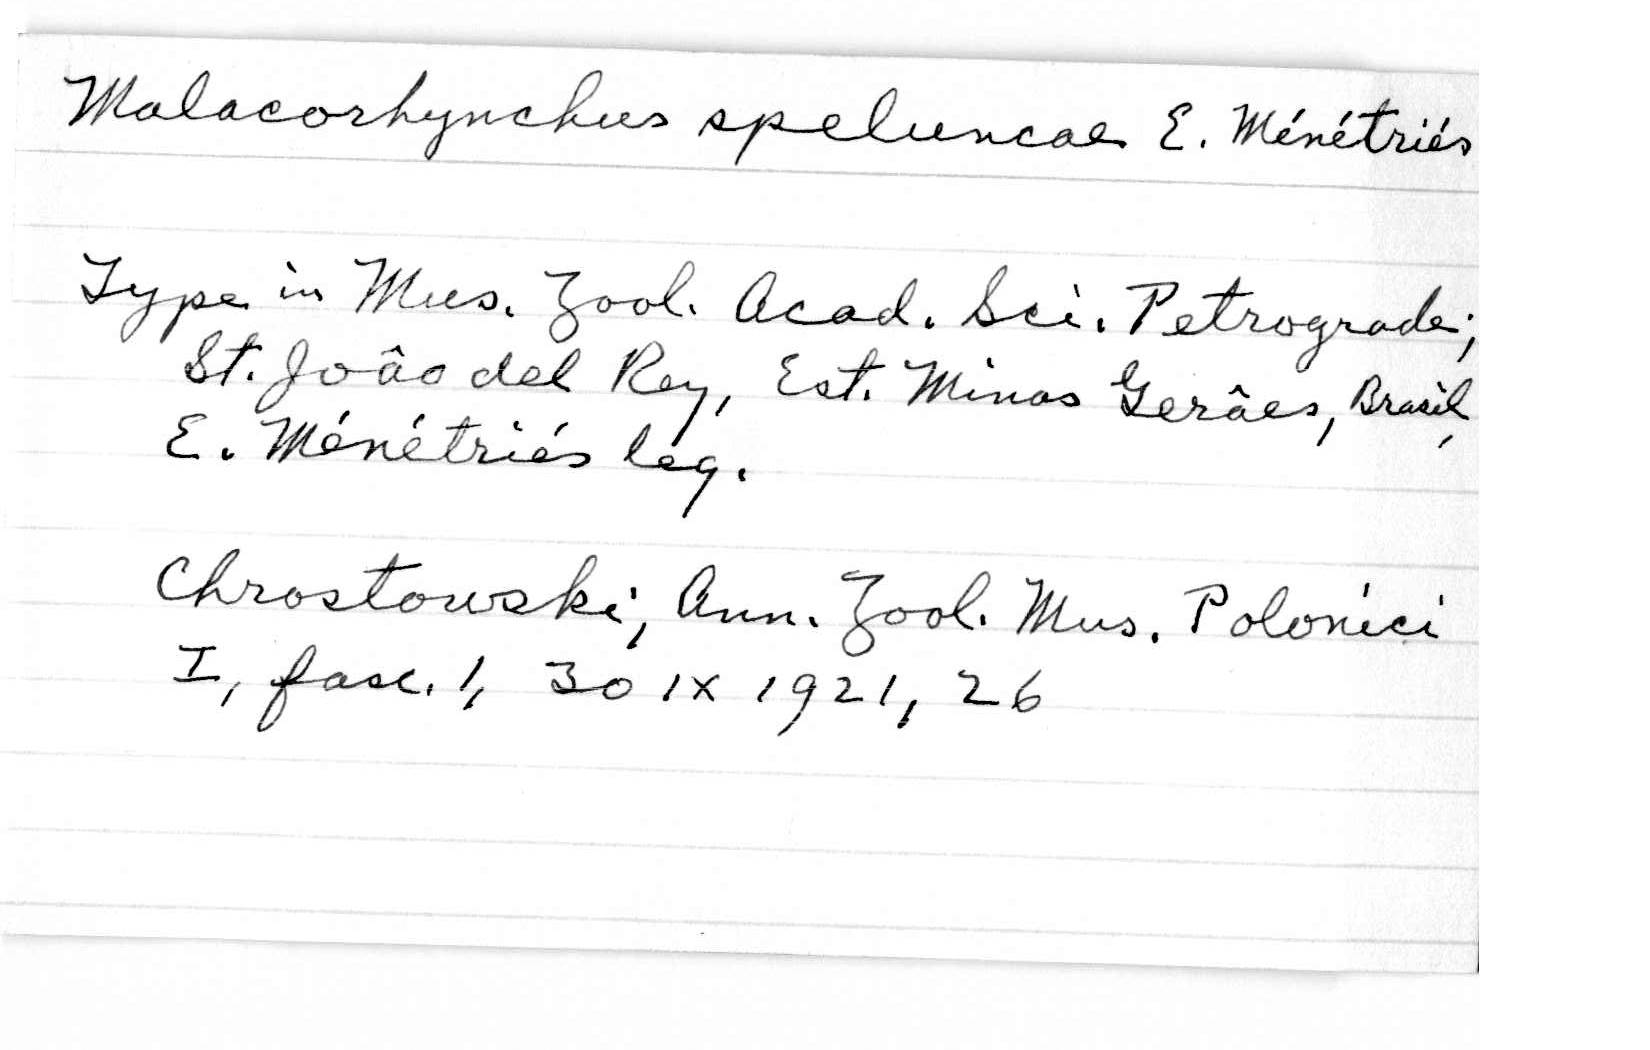 Malacorhynchus speluncae E. Ménétriés
Type in Mus. Zool. Acad. Sci. Petrograde;
St. Joâo del Rey, Est. Minas Gerâes, Brasil,
E. Ménétriés leg.
Chrostowski, Ann. Zool. Mus. Polonici
I, fasc. 1, 30 IX 1921, 26